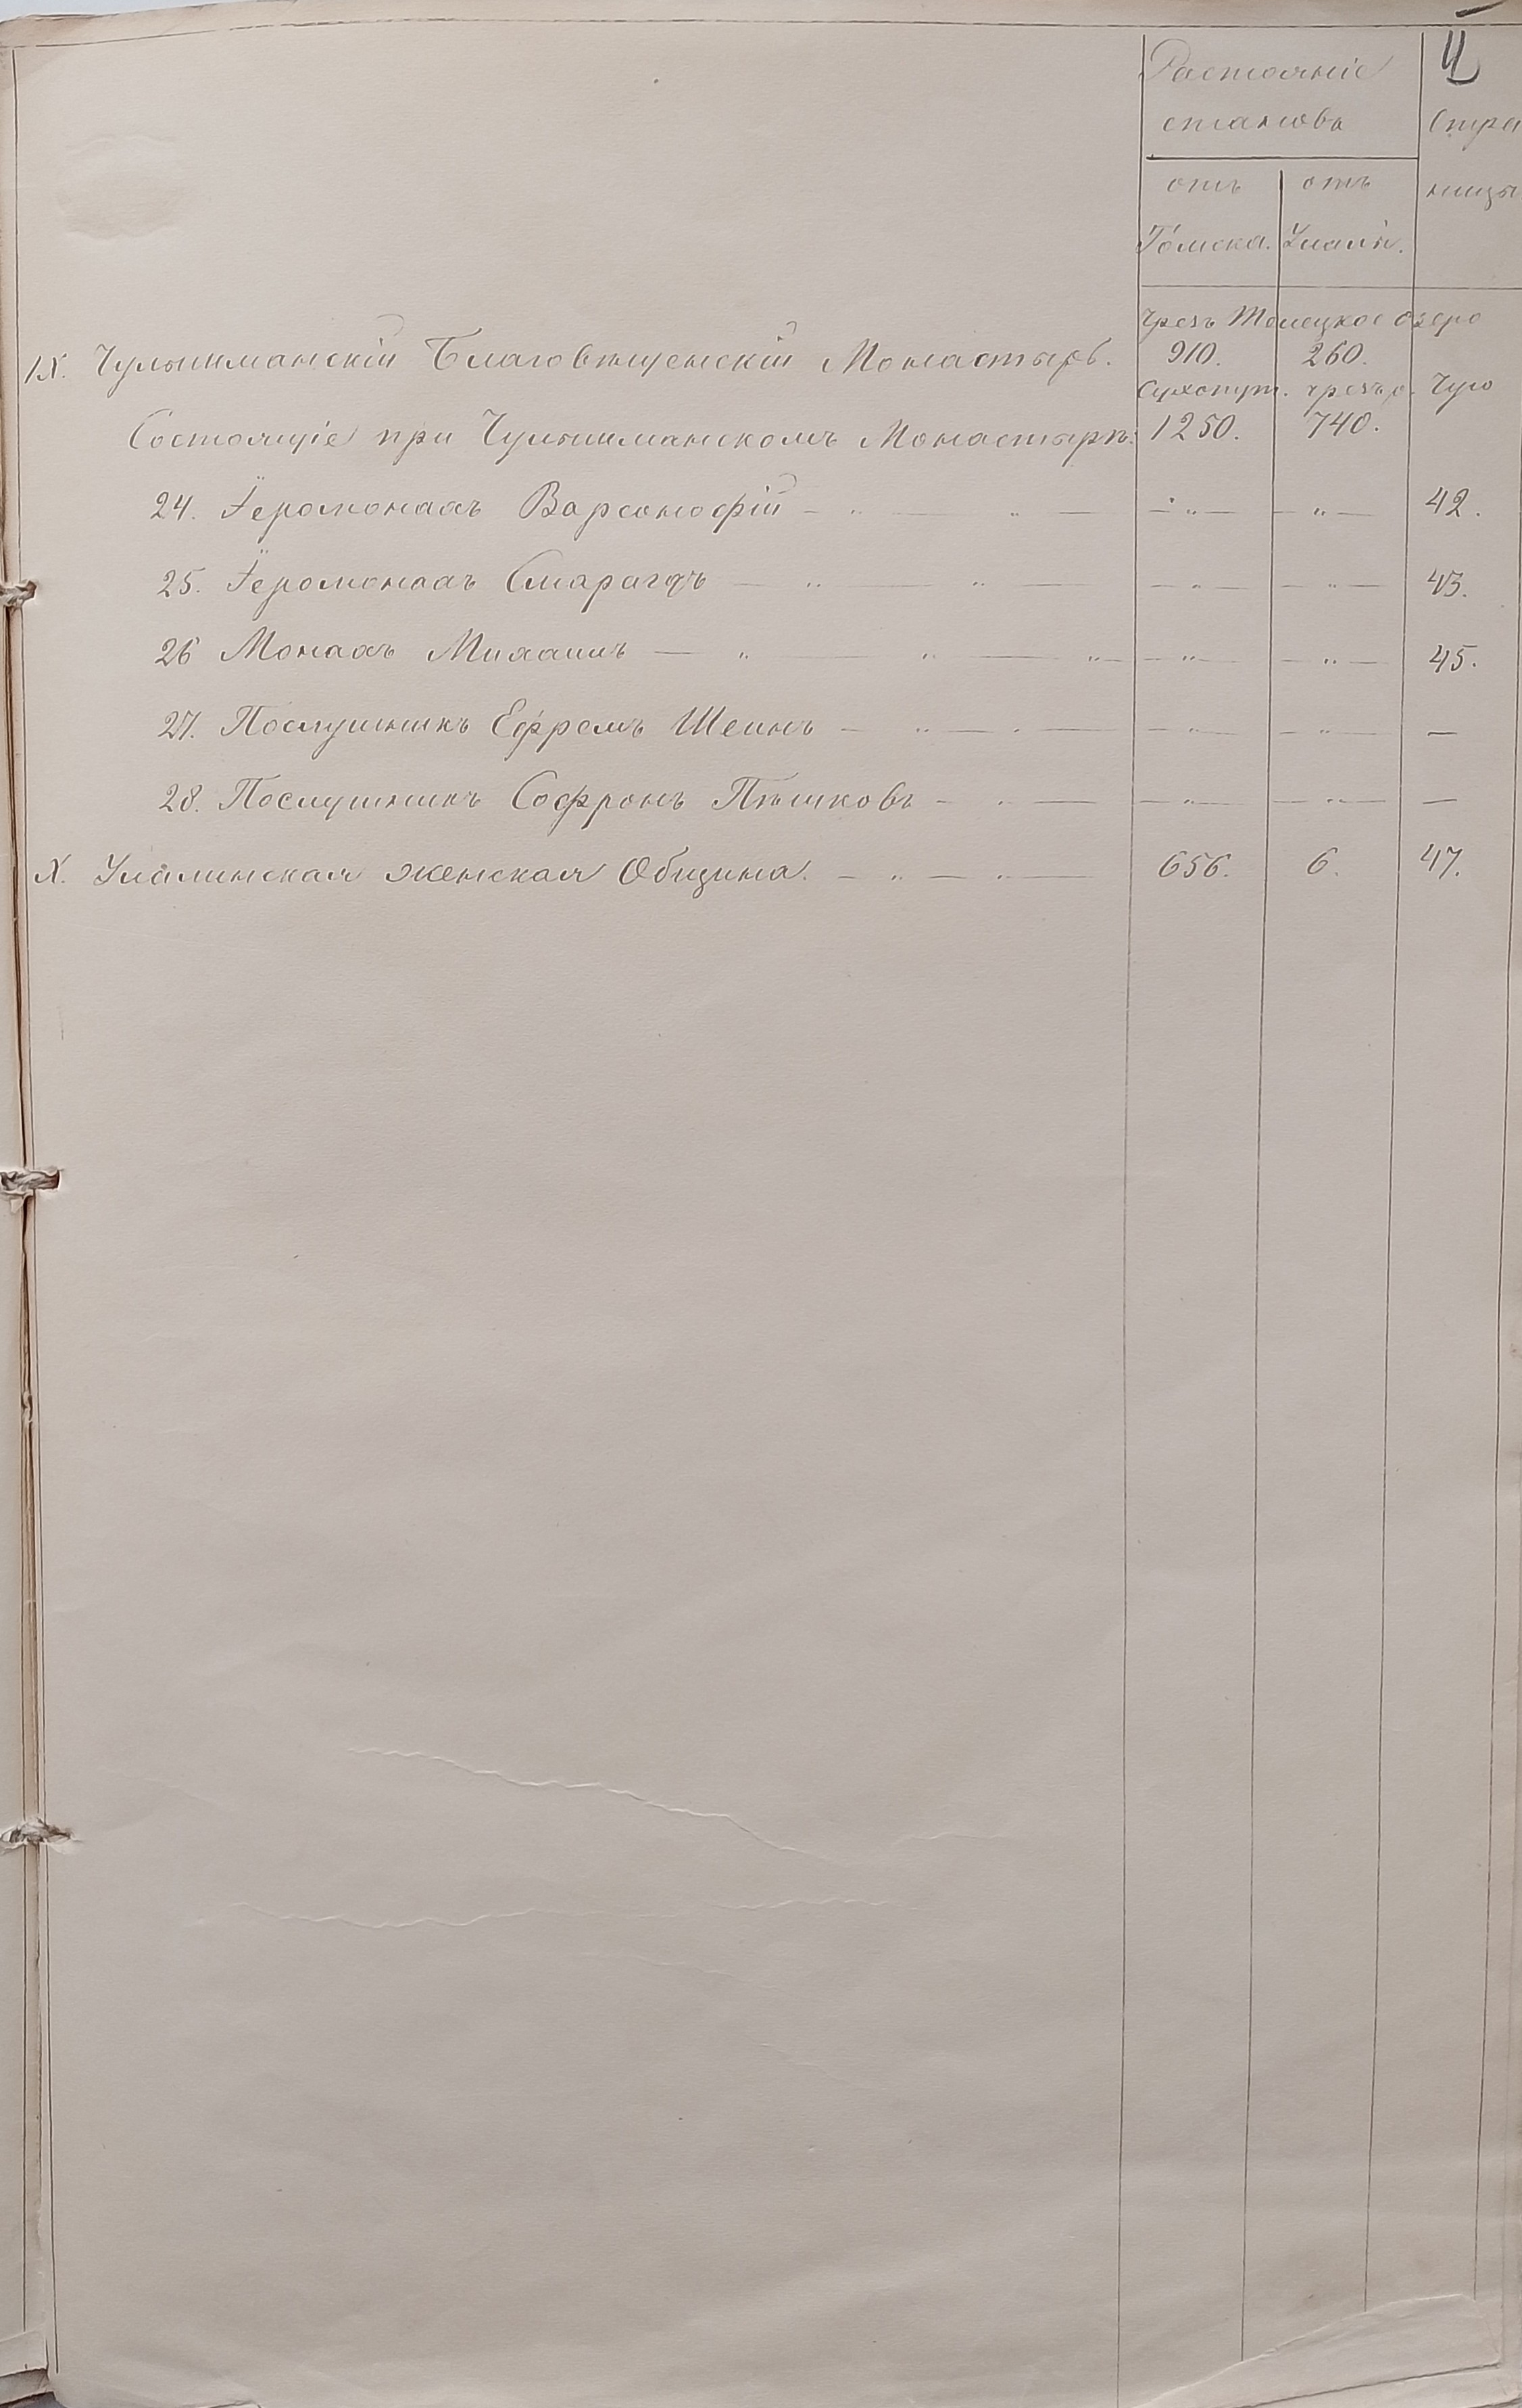 4
Растояніе
становъ
Стра
ницы
отъ отъ
Томска. Улалы.
Чрезъ Телецкое озеро
IX. Чулышманскій Благовѣщенскій Монастырь. 910. 260.
Сухопут. чрезъ р. Чую
Состоящіе при Чулышманскомъ Монастырѣ: 1250. 740.
24. Іеромонахъ Варсонофій — „ — „ — — „ — — „ — 42.
25. Іеромонахъ Смарагдъ — „ — „ — — „ — — „ — 43.
26 Монахъ Михаилъ — „ — „ — „ — „ — — „ — 45.
27. Послушникъ Ефремъ Шеинъ — „ — „ — — „ — — „ — —
28. Послушникъ Софронъ Пѣшковъ — „ — — „ — — „ — —
X. Улалинская женская Община. — „ — „ — 656. 6. 47.